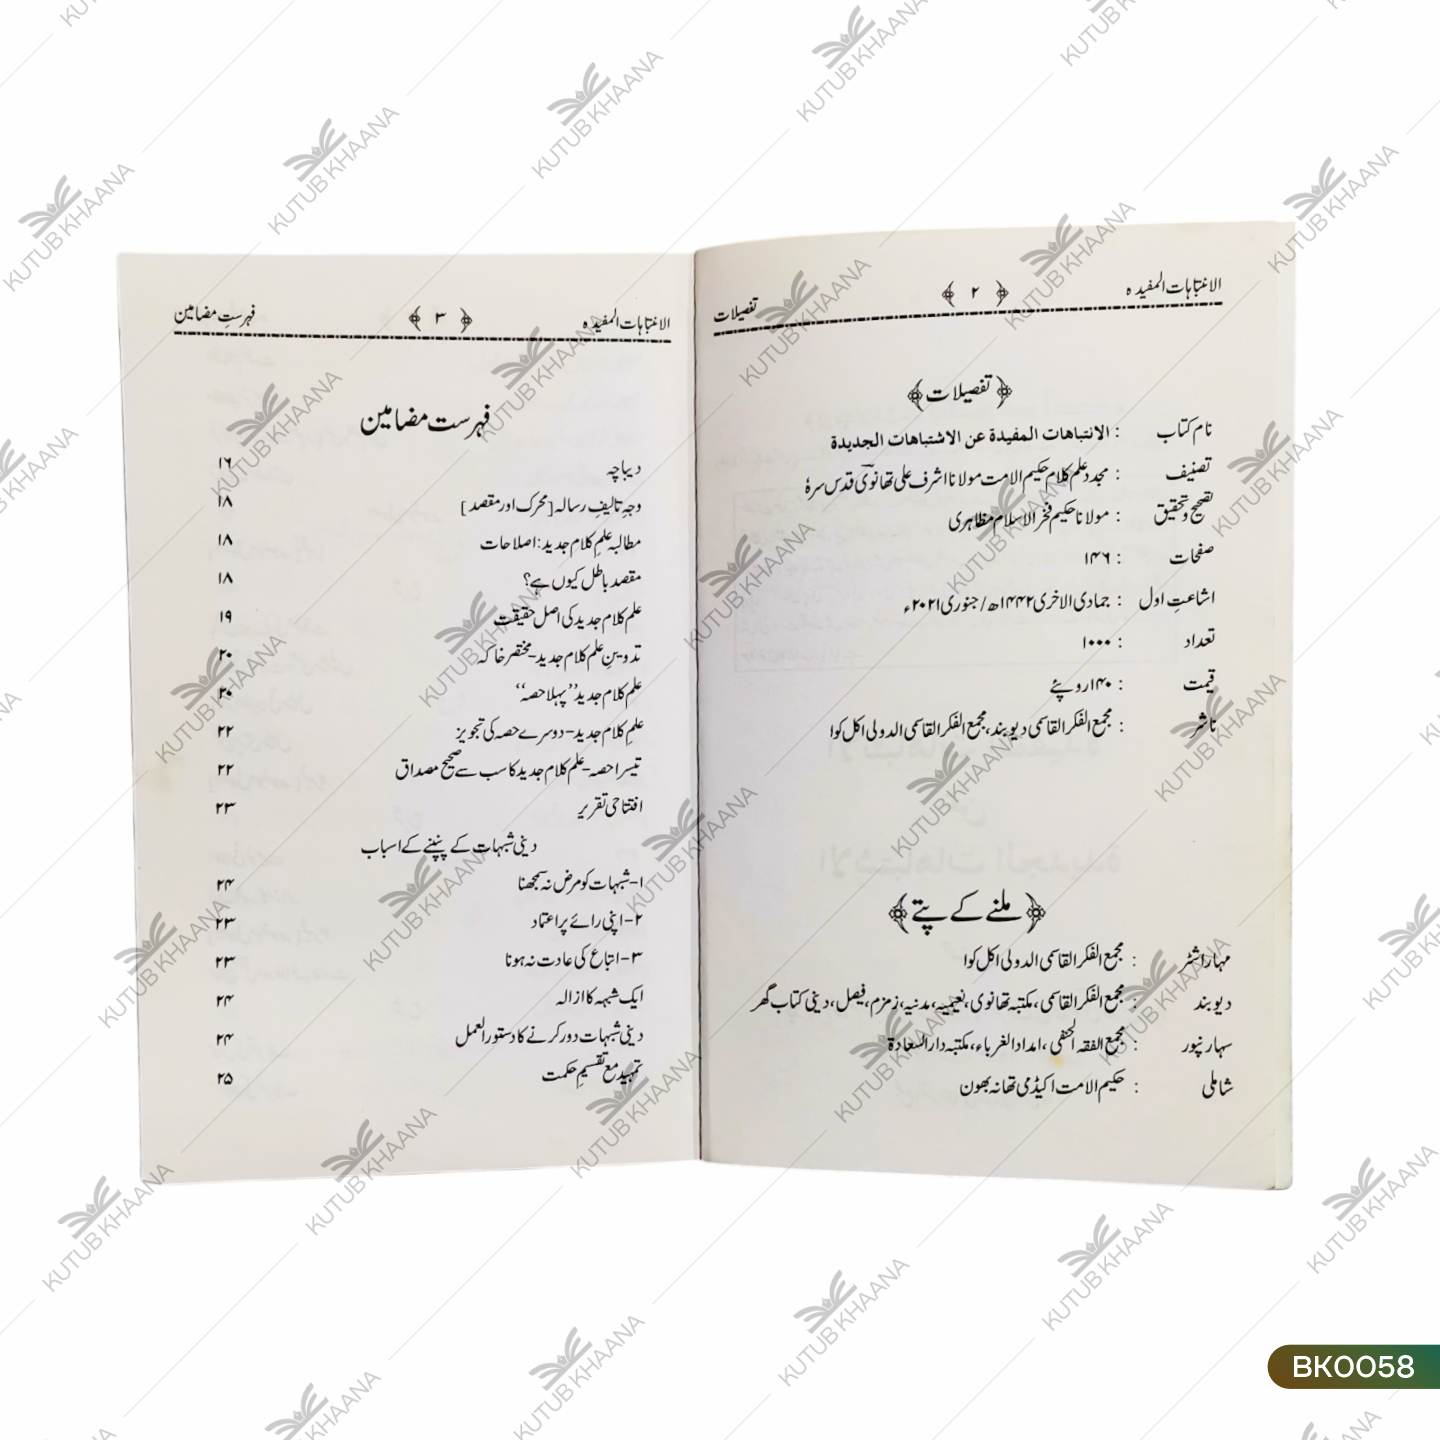 الانتباہات المفیدہ ﴿ ۲ ﴾ تفصیلات
﴿ تفصیلات ﴾
نام کتاب : الانتباهات المفيدة عن الاشتباهات الجديدة
تصنیف : مجدد علم کلام حکیم الامت مولانا اشرف علی تھانویؒ قدس سرہٗ
تصحیح و تحقیق : مولانا حکیم فخر الاسلام مظاہری
صفحات : ۱۴۶
اشاعتِ اول : جمادی الاخری ۱۴۴۲ھ / جنوری ۲۰۲۱ء
تعداد : ۱۰۰۰
قیمت : ۱۴۰ روپئے
ناشر : مجمع الفکر القاسمی دیوبند، مجمع الفکر القاسمی الدولی اکل کوا
﴿ ملنے کے پتے ﴾
مہاراشٹر : مجمع الفکر القاسمی الدولی اکل کوا
دیوبند : مجمع الفکر القاسمی، مکتبہ تھانوی، نعیمیہ، مدنیہ، زمزم، فیصل، دینی کتاب گھر
سہارنپور : مجمع الفقہ الحنفی، امداد الغرباء، مکتبہ دار السعادۃ
شاملی : حکیم الامت اکیڈمی تھانہ بھون
الانتباہات المفیدہ ﴿ ۳ ﴾ فہرستِ مضامین
فہرست مضامین
دیباچہ ۱۶
وجہِ تالیفِ رسالہ [محرک اور مقصد] ۱۸
مطالبہ علمِ کلامِ جدید: اصلاحات ۱۸
مقصد باطل کیوں ہے؟ ۱۸
علم کلام جدید کی اصل حقیقت ۱۹
تدوینِ علم کلام جدید - مختصر خاکہ ۲۰
علم کلام جدید ’’پہلا حصہ‘‘ ۲۰
علمِ کلام جدید - دوسرے حصہ کی تجویز ۲۲
تیسرا حصہ - علم کلام جدید کا سب سے صحیح مصداق ۲۲
افتتاحی تقریر ۲۳
دینی شبہات کے پنپنے کے اسباب
۱- شبہات کو مرض نہ سمجھنا ۲۴
۲- اپنی رائے پر اعتماد ۲۳
۳- اتباع کی عادت نہ ہونا ۲۳
ایک شبہہ کا ازالہ ۲۴
دینی شبہات دور کرنے کا دستور العمل ۲۴
تمہید مع تقسیمِ حکمت ۲۵
KUTUB KHAANA
BK0058